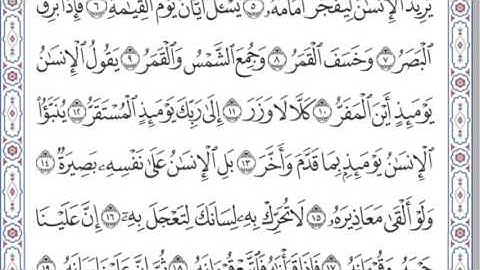 يُرِيدُ ٱلْإِنسَٰنُ لِيَفْجُرَ أَمَامَهُۥ ۝٥ يَسْـَٔلُ أَيَّانَ يَوْمُ ٱلْقِيَٰمَةِ ۝٦ فَإِذَا بَرِقَ
ٱلْبَصَرُ ۝٧ وَخَسَفَ ٱلْقَمَرُ ۝٨ وَجُمِعَ ٱلشَّمْسُ وَٱلْقَمَرُ ۝٩ يَقُولُ ٱلْإِنسَٰنُ
يَوْمَئِذٍ أَيْنَ ٱلْمَفَرُّ ۝١٠ كَلَّا لَا وَزَرَ ۝١١ إِلَىٰ رَبِّكَ يَوْمَئِذٍ ٱلْمُسْتَقَرُّ ۝١٢ يُنَبَّؤُا۟
ٱلْإِنسَٰنُ يَوْمَئِذٍۭ بِمَا قَدَّمَ وَأَخَّرَ ۝١٣ بَلِ ٱلْإِنسَٰنُ عَلَىٰ نَفْسِهِۦ بَصِيرَةٌ ۝١٤
وَلَوْ أَلْقَىٰ مَعَاذِيرَهُۥ ۝١٥ لَا تُحَرِّكْ بِهِۦ لِسَانَكَ لِتَعْجَلَ بِهِۦٓ ۝١٦ إِنَّ عَلَيْنَا
جَمْعَهُۥ وَقُرْءَانَهُۥ ۝١٧ فَإِذَا قَرَأْنَٰهُ فَٱتَّبِعْ قُرْءَانَهُۥ ۝١٨ ثُمَّ إِنَّ عَلَيْنَا بَيَانَهُۥ ۝١٩